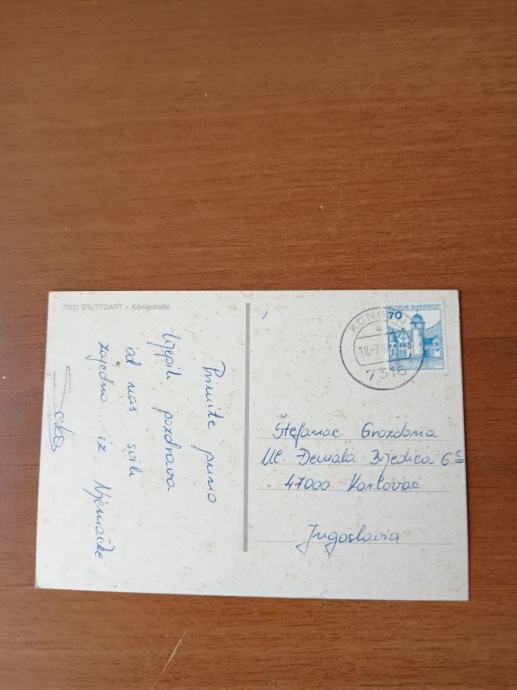 7000 STUTTGART - Königstraße
Primite puno
lijepih pozdrava
od nas svih
zajedno iz Njemačke
DEUTSCHE BUNDESPOST
70
18.-7.
7316
Štefanac Grozdana
Ul. Đemala Bijedića 6
47000 Karlovac
Jugoslavia